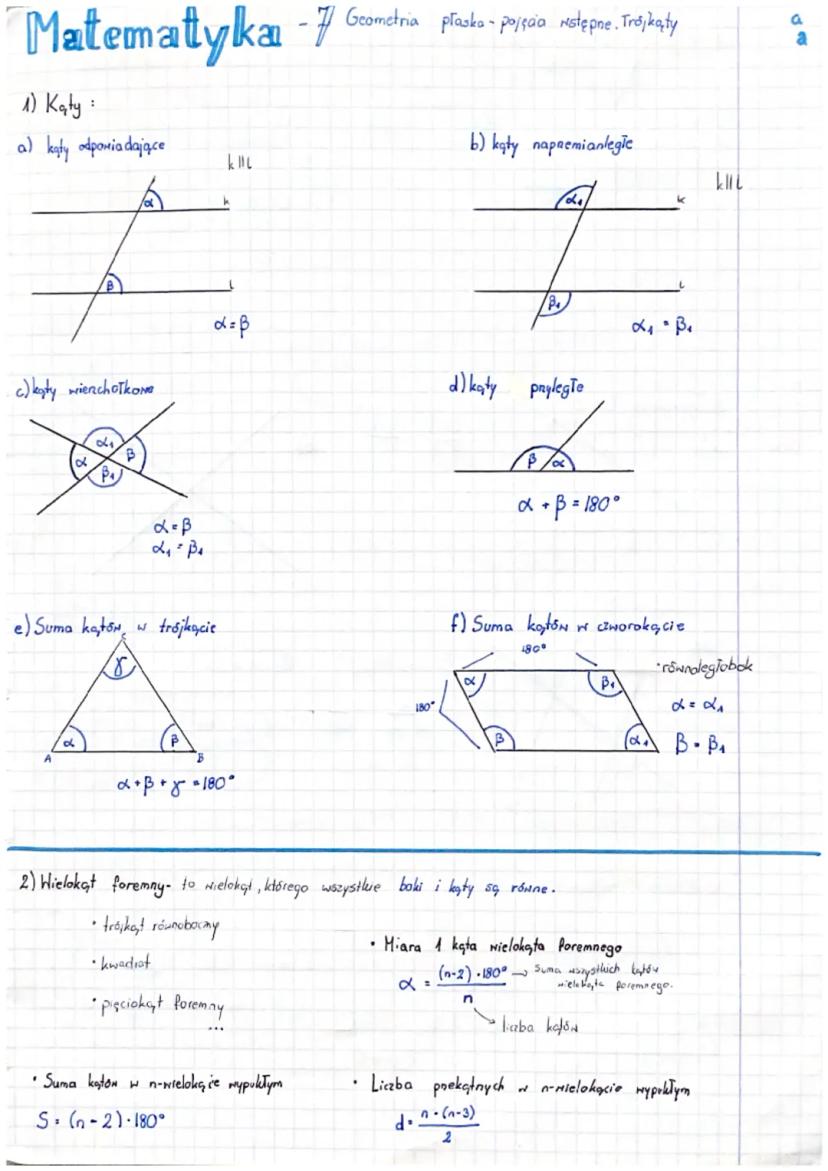 Matematyka - 7 Geometria płaska - pojęcia wstępne. Trójkąty
a
a
1) Kąty :
a) kąty odpowiadające
k || l
α
k
β
l
α = β
b) kąty naprzemianległe
k || l
α₁
k
β₁
l
α₁ = β₁
c) kąty wierzchołkowe
α₁
α
β
β₁
α = β
α₁ = β₁
d) kąty przyległe
β
α
α + β = 180°
e) Suma kątów w trójkącie
C
γ
α
β
A
B
α + β + γ = 180°
f) Suma kątów w czworokącie
180°
• równoległobok
α
β₁
180°
α = α₁
β
α₁
β = β₁
2) Wielokąt foremny - to wielokąt, którego wszystkie boki i kąty są równe.
• trójkąt równoboczny
• kwadrat
• pięciokąt foremny
...
• Miara 1 kąta wielokąta foremnego
α = (n-2)·180° / n
→ Suma wszystkich kątów
wielokąta foremnego.
liczba kątów
• Suma kątów w n-wielokącie wypukłym
S = (n - 2)·180°
• Liczba przekątnych w n-wielokącie wypukłym
d = n·(n-3) / 2